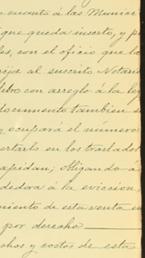 en cuanto á las Mismas
que queda inserto, y p
les, son el oficio que la
reja al suscrito Notario
libro con arreglo á la ley
documento tambien s
y ocupará el numero
sertarlo en los traslados
apidan; Obligando á
dedora á la eviccion,
miento de esta venta en
por derecho
chos y costos de esta